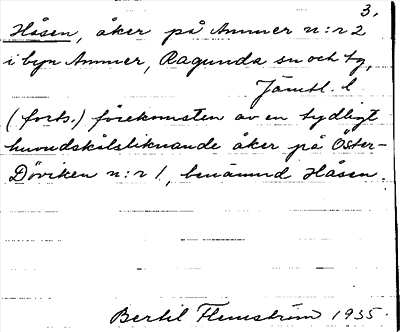 3.
Håsen, åker på Ammer n:r 2
i byn Ammer, Ragunda sn och tg,
Jämtl. l
(forts.) förekomsten av en tydligt
huvudskålsliknande åker på Öster-
Döviken n:r 1, benämnd Håsen.
Bertil Flemström 1935.